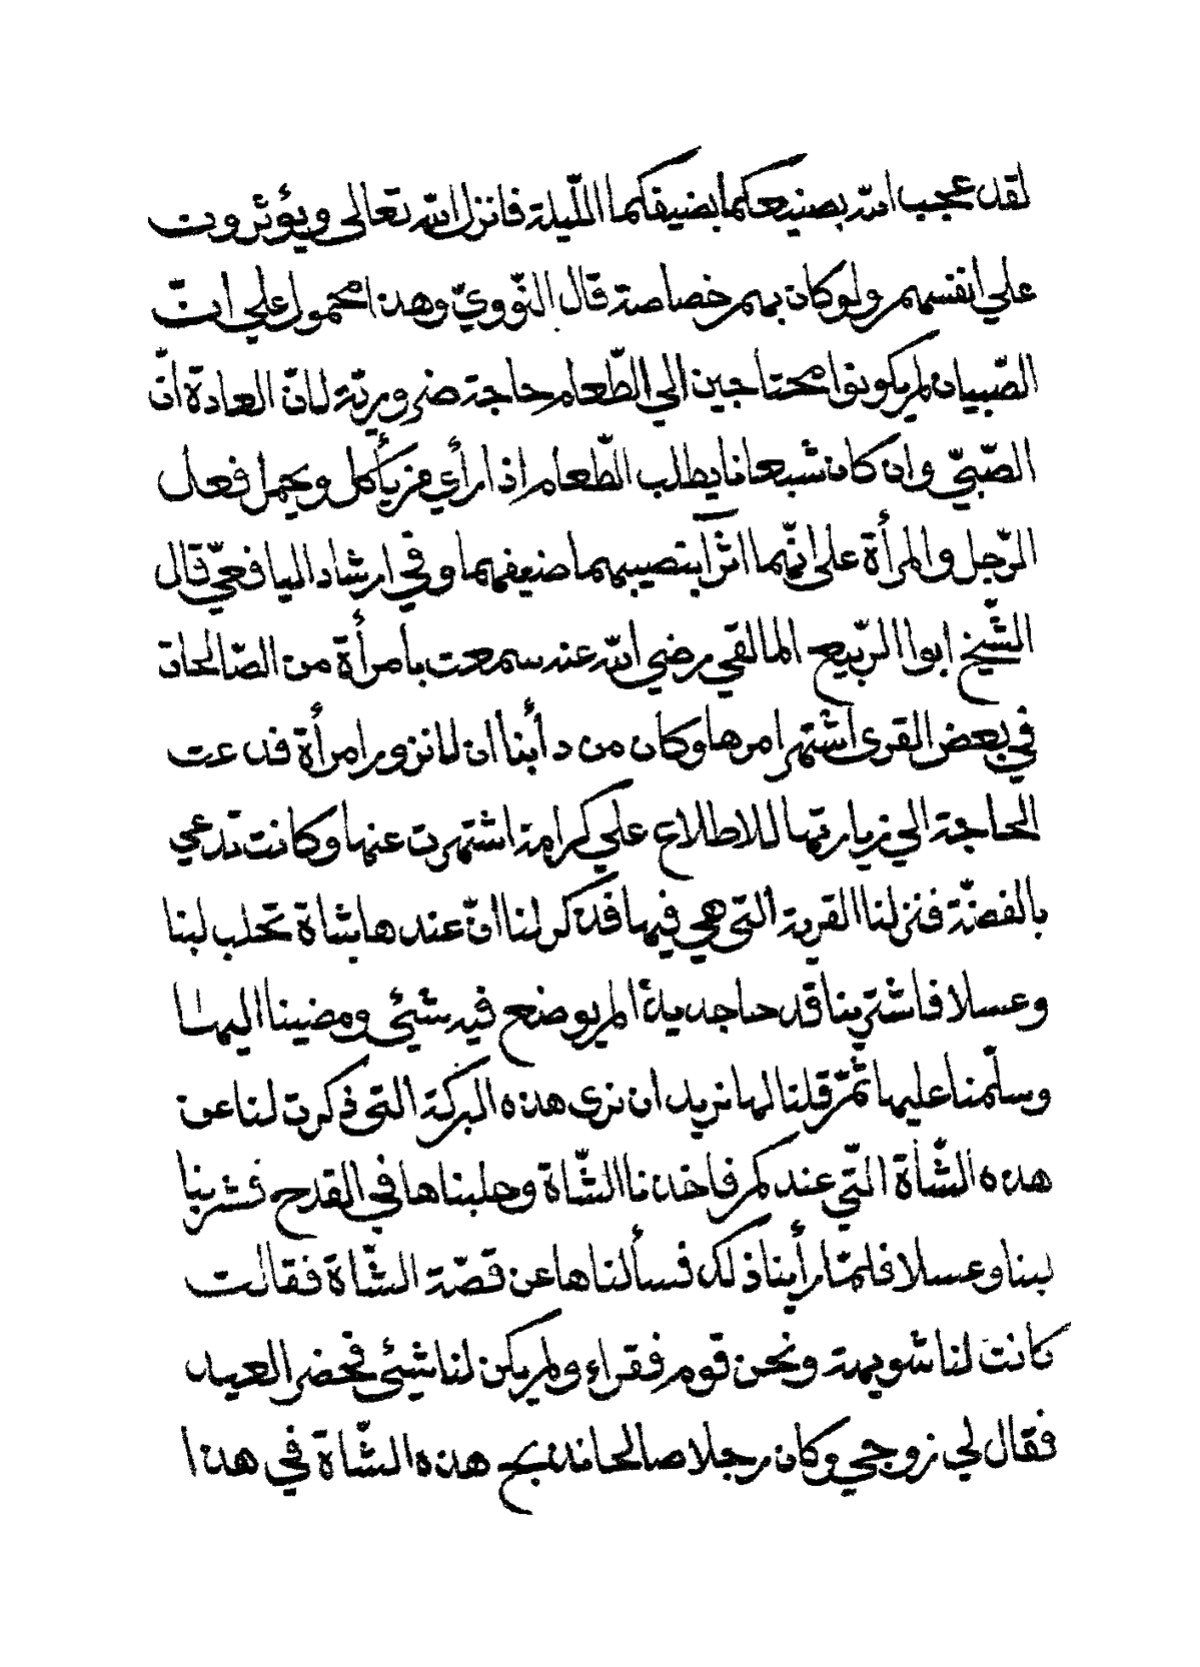 لقد عجب الله بصنيعكما بضيفكما اللّيلة فانزل الله تعالى ويؤثرون
علي انفسهم ولو كان بهم خصاصة قال النّوويّ وهذا محمول علي انّ
الصّبيان لم يكونوا محتاجين الي الطّعام حاجة ضروريّة لانّ العادة انّ
الصّبيّ وان كان شبعانا يطلب الطّعام اذا رأي من يأكل ويحمل فعل
الرّجل والمرأة علي انّهما اثرآ بنصيبهما ضيفهما وفي ارشاد اليافعيّ قال
الشّيخ ابوا الرّبيع المالقي رضي الله عنه سمعت بامرأة من الصّالحات
في بعض القرى اشتهر امرها وكان من دأبنا ان لا نزور امرأة فدعت
الحاجة الي زيارتها للاطلاع علي كرامة اشتهرت عنها وكانت تدعي
بالفضّة فنزلنا القرية التي هي فيها فذكر لنا انّ عندها شاة تحلب لبنا
وعسلا فاشترينا قدحا جديدا لم يوضع فيه شيئ ومضينا اليها
وسلّمنا عليها ثمّ قلنا لها نريد ان نرى هذه البركة التي ذكرت لنا عن
هذه الشّأة الّتي عندكم فاخذنا الشّاة وحلبناها في القدح فشربنا
لبنا وعسلا فلمّا رأينا ذلك فسألناها عن قصّة الشّاة فقالت
كانت لنا شويهة ونحن قوم فقراء ولم يكن لنا شيئ فحضر العيد
فقال لي زوجي وكان رجلا صالحا نذبح هذه الشّاة في هذا